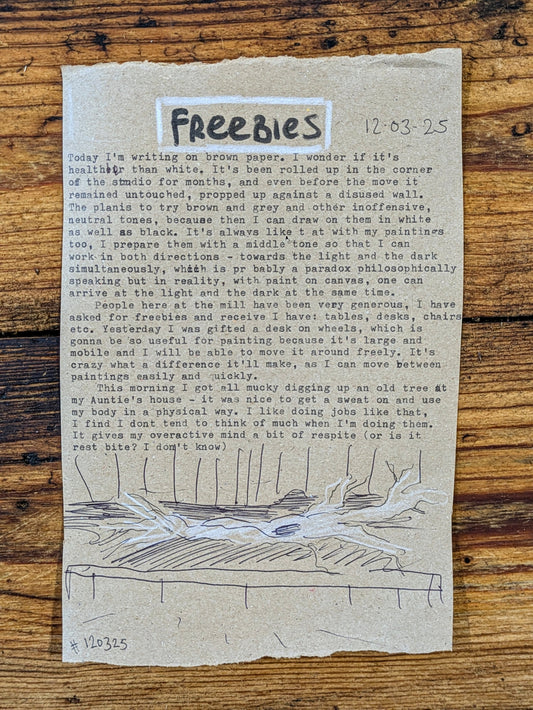 FREEBIES
12-03-25
Today I'm writing on brown paper. I wonder if it's
healthier than white. It's been rolled up in the corner
of the studio for months, and even before the move it
remained untouched, propped up against a disused wall.
The planis to try brown and grey and other inoffensive,
neutral tones, because then I can draw on them in white
as well as black. It's always like t at with my paintings
too, I prepare them with a middle tone so that I can
work in both directions - towards the light and the dark
simultaneously, which is pr bably a paradox philosophically
speaking but in reality, with paint on canvas, one can
arrive at the light and the dark at the same time.
People here at the mill have been very generous, I have
asked for freebies and receive I have: tables, desks, chairs
etc. Yesterday I was gifted a desk on wheels, which is
gonna be so useful for painting because it's large and
mobile and I will be able to move it around freely. It's
crazy what a difference it'll make, as I can move between
paintings easily and quickly.
This morning I got all mucky digging up an old tree at
my Auntie's house - it was nice to get a sweat on and use
my body in a physical way. I like doing jobs like that,
I find I dont tend to think of much when I'm doing them.
It gives my overactive mind a bit of respite (or is it
rest bite? I don't know)
# 120325